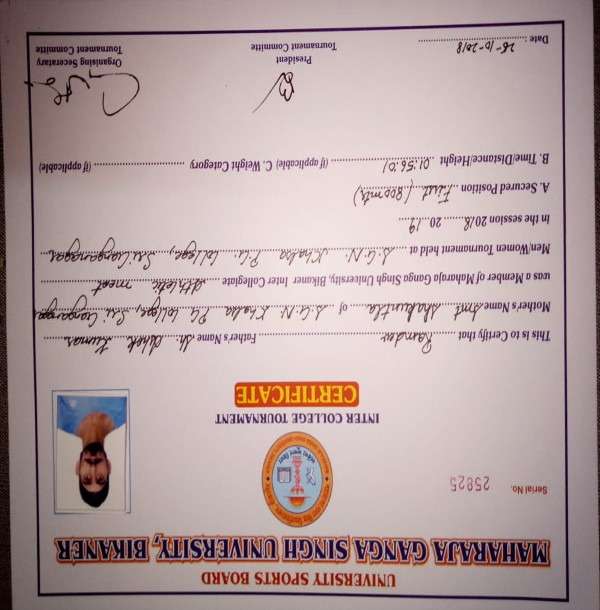 UNIVERSITY SPORTS BOARD
MAHARAJA GANGA SINGH UNIVERSITY, BIKANER
Serial No. 25825
INTER COLLEGE TOURNAMENT
CERTIFICATE
This is to Certify that Ramdev Father's Name Sh. Ashok Kumar
Mother's Name Smt Shakuntla of S.G.N. Khalsa PG College, Sri Ganganagar
was a Member of Maharaja Ganga Singh University, Bikaner Inter Collegiate Athletic meet
Men/Women Tournament held at S.G.N. Khalsa P.G. College, Sri Ganganagar
in the session 2018 2019
A. Secured Position First (800mts)
B. Time/Distance/Height 01:56:01 (if applicable) C. Weight Category (if applicable)
Date : 26-10-2018
President
Tournament Committe
Organising Seceratary
Tournament Committe